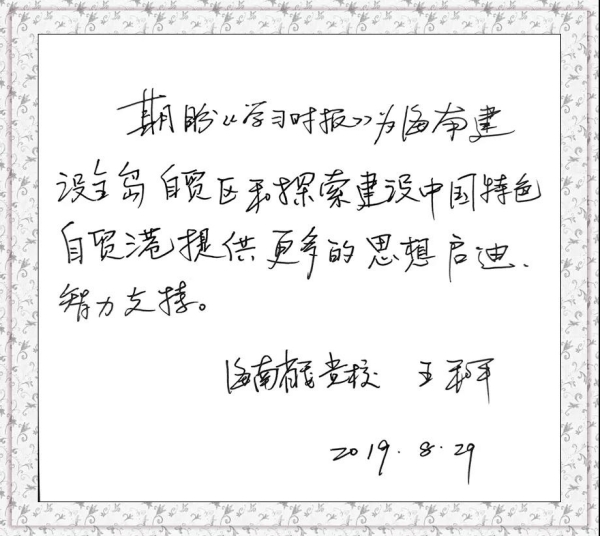 期盼《学习时报》为海南建
设全岛自贸区和探索建设中国特色
自贸港提供更多的思想启迪、
智力支持。
海南省委党校 王和平
2019.8.29